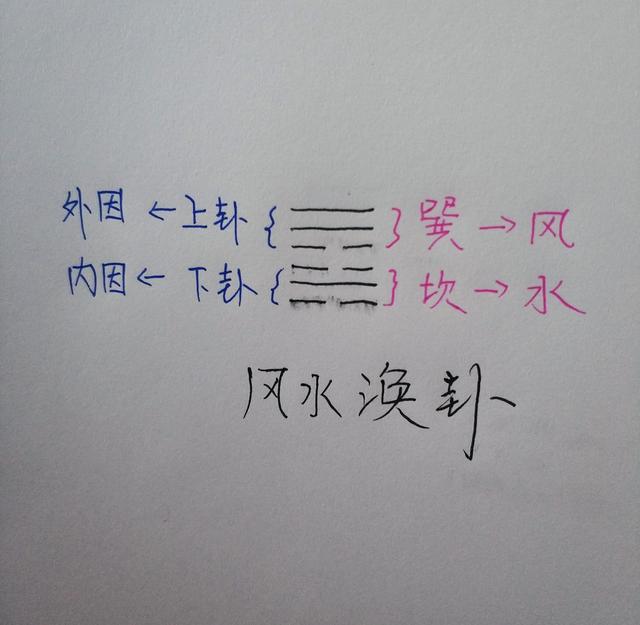 外因 ← 上卦 { } 巽 → 风
内因 ← 下卦 { } 坎 → 水
风水涣卦